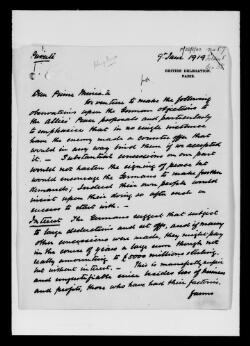 Private
9 June 1919
BRITISH DELEGATION,
PARIS.
Dear Prime Minister
We venture to make the following
observations upon the German objections to
the Allies' Peace proposals and particularly
to emphasise that in no single instance
have the enemy made a counter offer that
would in any way bind them if we accepted
it. — Substantial concessions on our part
would not hasten the signing of peace but
would encourage the Germans to make further
demands, indeed their own people would
insist upon their doing so after such a
success to start with. —
Interest The Germans suggest that subject
to large deductions and set offs, and if many
other concessions were made, they might pay
in the course of years a large sum though not
really amounting to £5000 millions sterling,
but without interest. — This is manifestly unfair
and unjustifiable since besides loss of business
and profits, those who have had their factories,
farms